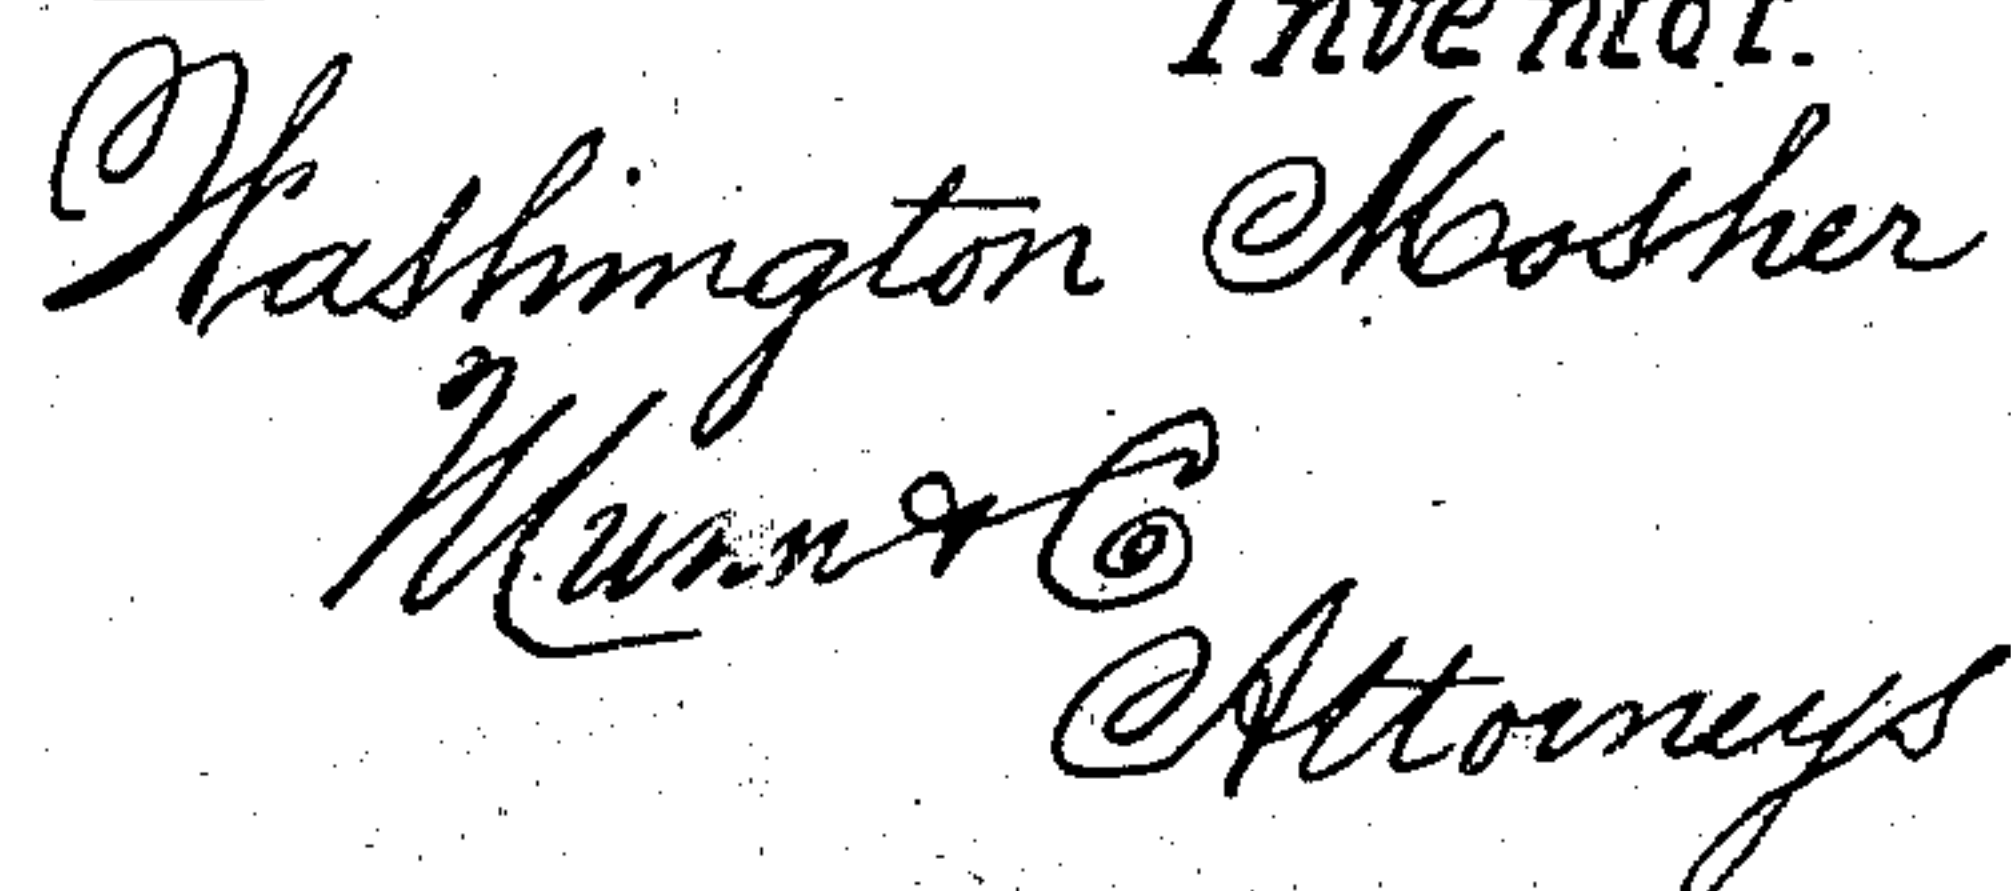 Inventor.
Washington Mosher
Munn & Co
Attorneys